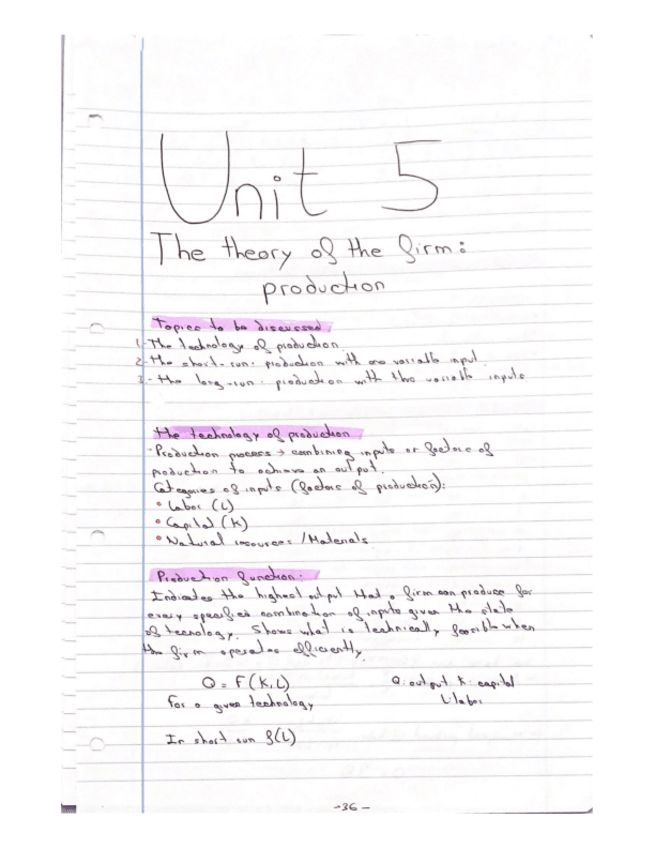 Unit 5
The theory of the firm:
production
Topics to be discussed
1-The technology of production
2-the short-run: production with one variable input
3-the long-run: production with two variable inputs
the technology of production
-Production process → combining inputs or factors of
production to achieve an output.
Categories of inputs (factors of production):
• Labor (L)
• Capital (K)
• Natural resources / Materials
Production function:
Indicates the highest output that a firm can produce for
every specified combination of inputs given the state
of tecnology. Shows what is technically feasible when
the firm operates efficiently
Q = F(K,L)
Q: output K: capital
For a given technology
L: labor
In short run f(L)
-36-